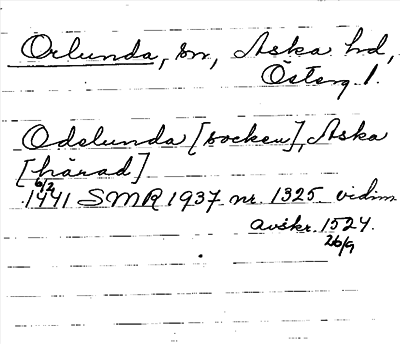 Orlunda, sn, Aska hd,
Österg. l.
Odelunda [socken], Aska
[härad]
6/2
1441 SMR 1937 nr. 1325 vidim.
avskr. 1524.
26/9